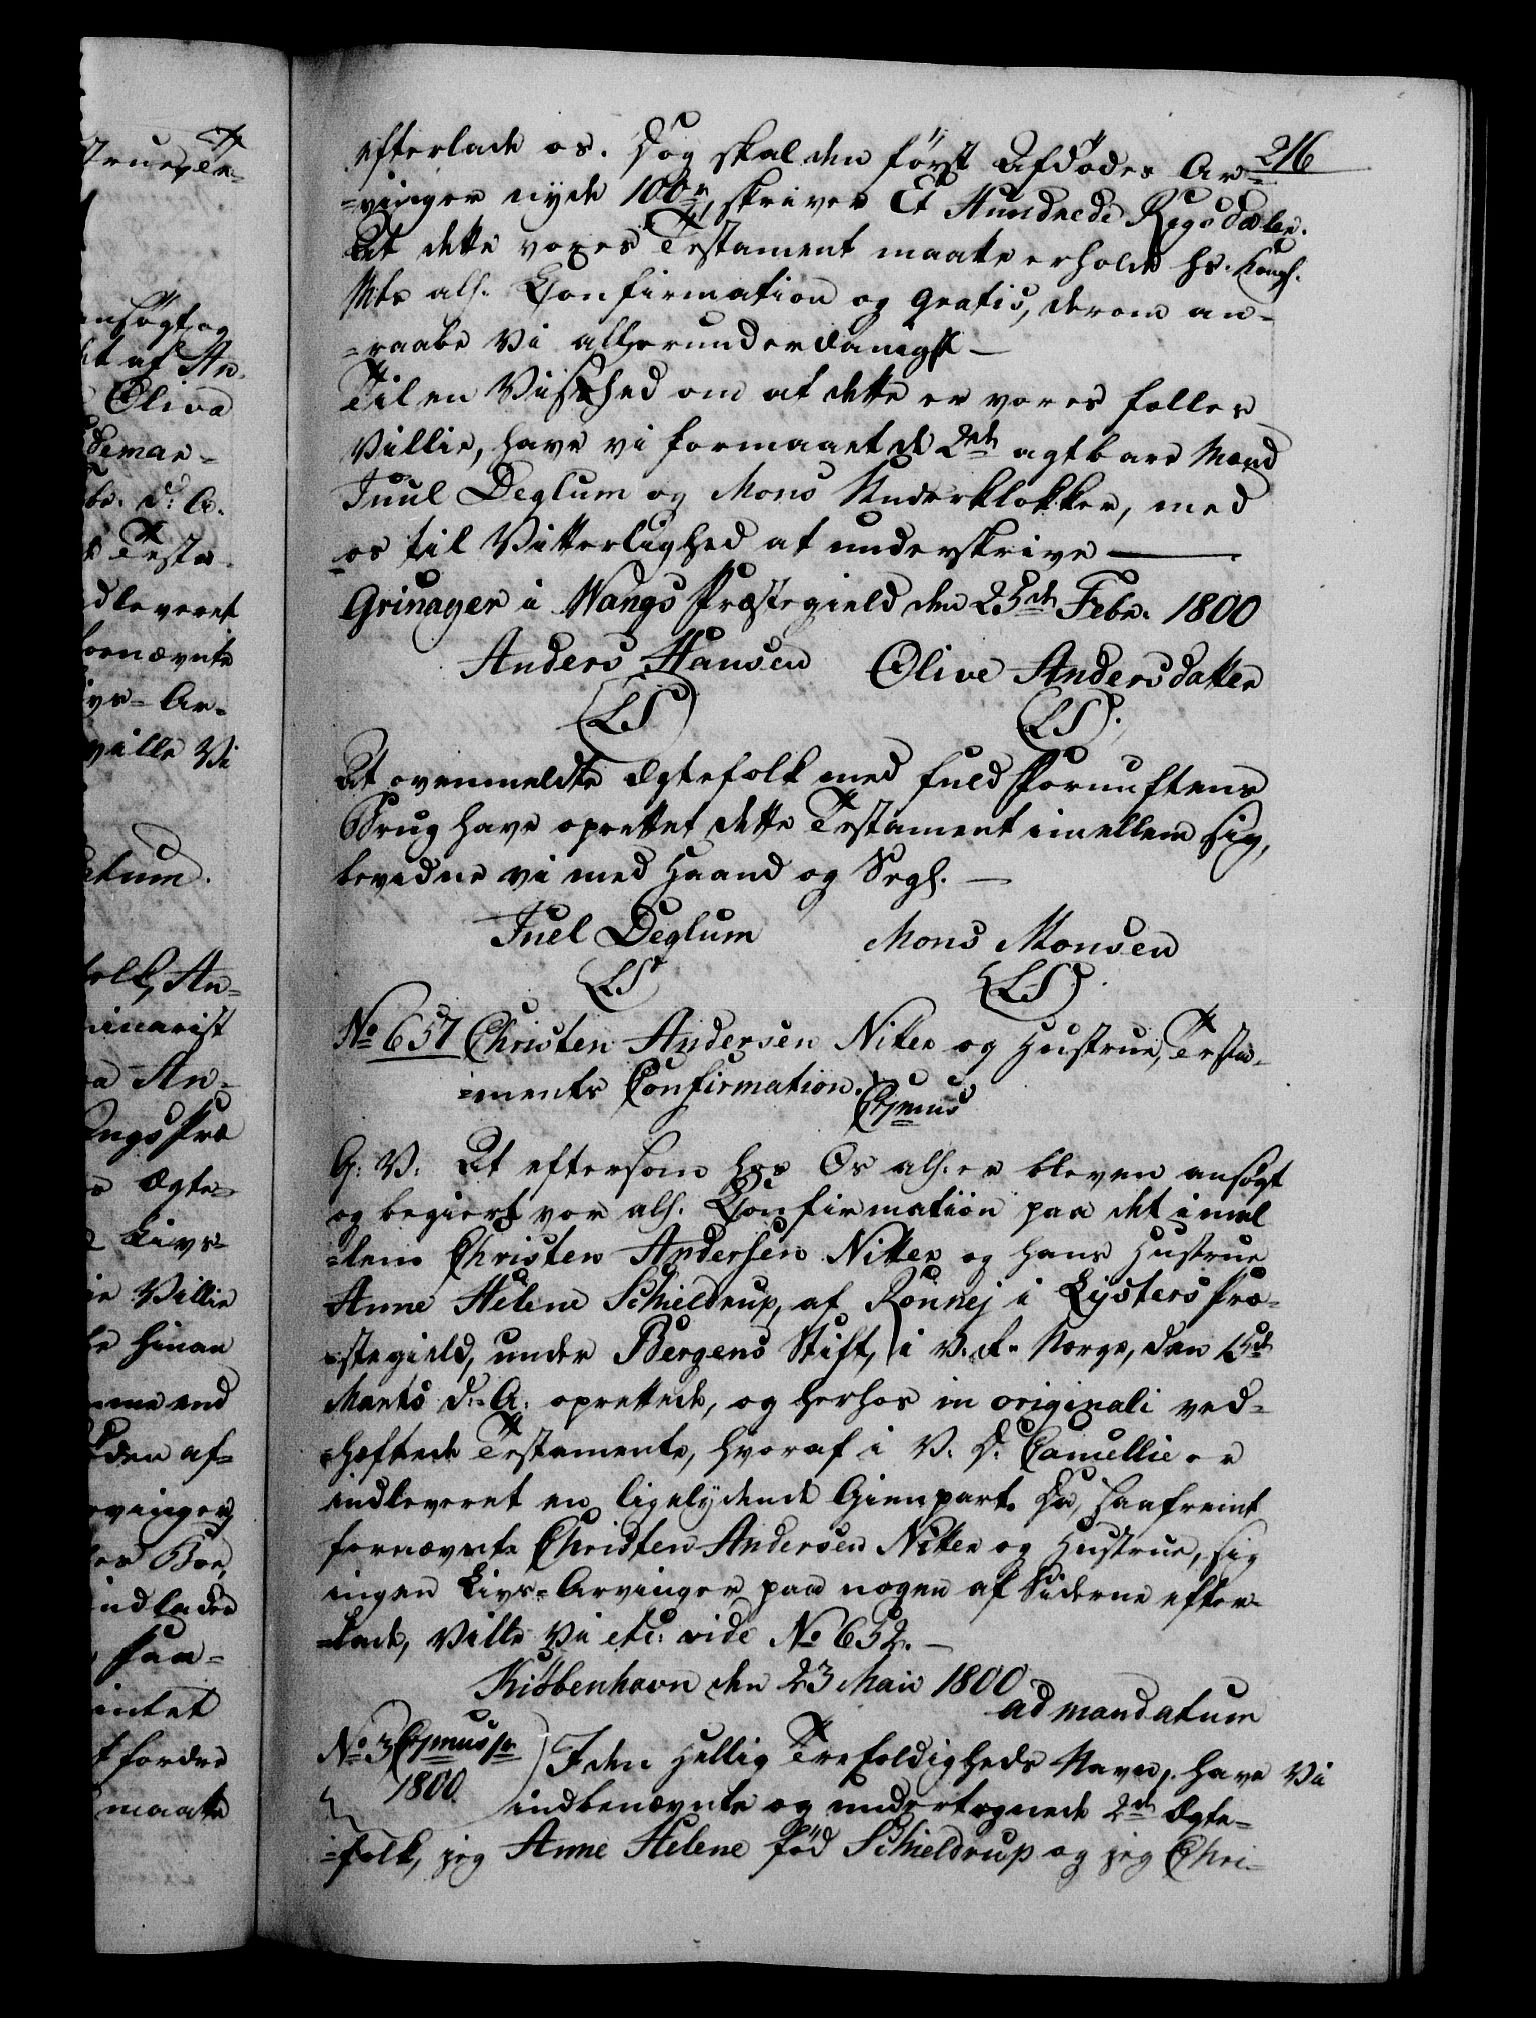 216
efterlade os. Dog skal den først Afdødes Ar=
=vinger nyde 100 r, skriver Et Hundrede Rigsdaler.
At dette vores Testament maatte erholde hs. Kongl.
Mts all. Confirmation og gratis, derom an=
=raabe Vi allerunderdanigst —
Til en Vished om at dette er vores fælles
Villie, have vi formaaet de 2de agtbare Mænd
Juul Deglum og Mons Underklokker, med
os til Vitterlighed at underskrive —
Grinager i Wangs Præstegield den 25de Febr. 1800
Anders Hansen Olive Andersdatter
(LS) (LS).
At ovenmeldte Ægtefolk med fuld Fornuftens
Brug have oprettet dette Testament imellem sig,
bevidne vi med Haand og Segl. —
Juel Deglum Mons Monsen
(LS) (LS)
No 657 Christen Andersen Nitter og Hustrue, Testa=
=ments Confirmation.
G: V: At eftersom hos Os all. er bleven ansøgt
og begiert vor all. Confirmation paa det imel
=lem Christen Andersen Nitter og hans Hustrue
Anne Helene Schieldrup, af Rønnej i Lysters Præ=
=stegield, under Bergens Stift, i V. R. Norge, den 15de
Marts d: A: oprettede, og herhos in originali ved=
=heftede Testamente, hvoraf i V. D. Cancellie er
indleveret en ligelydende Gienpart. Da, saafremt
fornævnte Christen Andersen Nitter og Hustrue, sig
ingen Livs=Arvinger paa nogen af Siderne efter=
=lade, Ville Vi etc: vide No 652. —
Kiøbenhavn den 23 Maii 1800
ad mandatum
No 3
1800
I den Hellig Trefoldigheds Navn, have Vi
indbenævnte og undertegnede 2de Ægte=
=folk, jeg Anne Helene fød Schieldrup og jeg Chri=